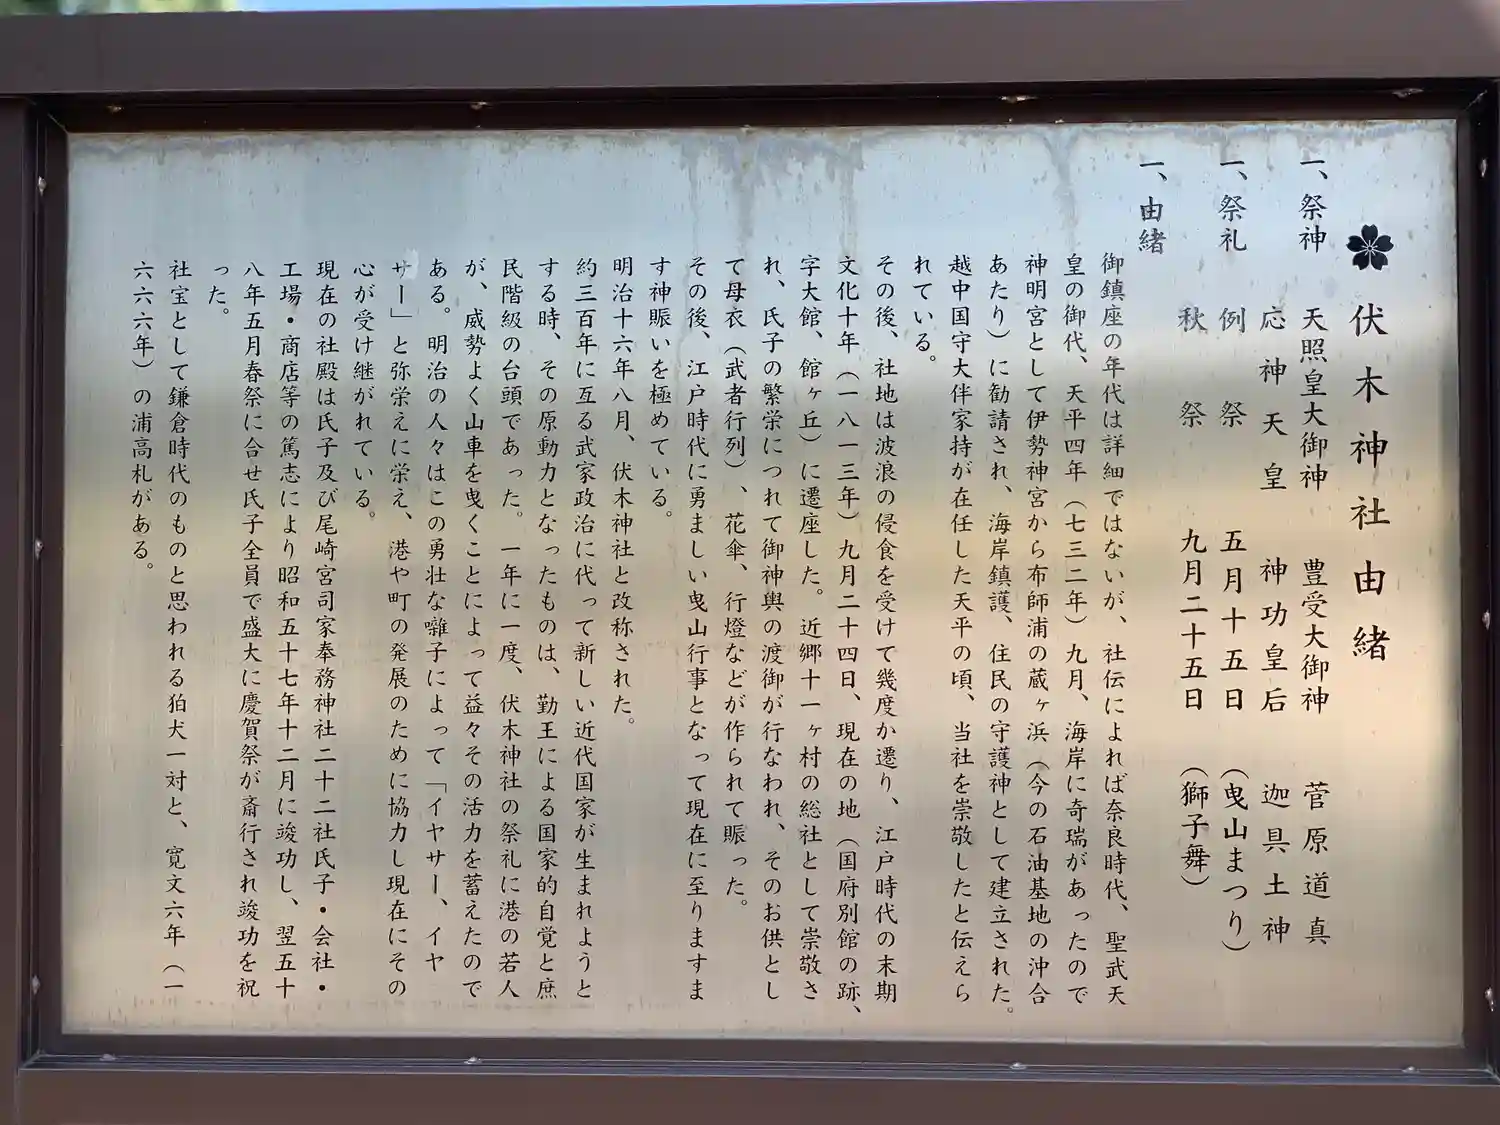 伏木神社由緒
一、祭神　天照皇大御神　豊受大御神　菅原道真
応神天皇　神功皇后　迦具土神
一、祭礼　例祭　五月十五日　（曳山まつり）
秋祭　九月二十五日　（獅子舞）
一、由緒
御鎮座の年代は詳細ではないが、社伝によれば奈良時代、聖武天
皇の御代、天平四年（七三二年）九月、海岸に奇瑞があったので
神明宮として伊勢神宮から布師浦の蔵ヶ浜（今の石油基地の沖合
あたり）に勧請され、海岸鎮護、住民の守護神として建立された。
越中国守大伴家持が在任した天平の頃、当社を崇敬したと伝えら
れている。
その後、社地は波浪の侵食を受けて幾度か遷り、江戸時代の末期
文化十年（一八一三年）九月二十四日、現在の地（国府別館の跡、
字大館、館ヶ丘）に遷座した。近郷十一ヶ村の総社として崇敬さ
れ、氏子の繁栄につれて御神輿の渡御が行なわれ、そのお供とし
て母衣（武者行列）、花傘、行燈などが作られて賑った。
その後、江戸時代に勇ましい曳山行事となって現在に至りますま
す神賑いを極めている。
明治十六年八月、伏木神社と改称された。
約三百年に亙る武家政治に代って新しい近代国家が生まれようと
する時、その原動力となったものは、勤王による国家的自覚と庶
民階級の台頭であった。一年に一度、伏木神社の祭礼に港の若人
が、威勢よく山車を曳くことによって益々その活力を蓄えたので
ある。明治の人々はこの勇壮な囃子によって「イヤサー、イヤ
サー」と弥栄えに栄え、港や町の発展のために協力し現在にその
心が受け継がれている。
現在の社殿は氏子及び尾崎宮司家奉務神社二十二社氏子・会社・
工場・商店等の篤志により昭和五十七年十二月に竣功し、翌五十
八年五月春祭に合せ氏子全員で盛大に慶賀祭が斎行され竣功を祝
った。
社宝として鎌倉時代のものと思われる狛犬一対と、寛文六年（一
六六六年）の浦高札がある。